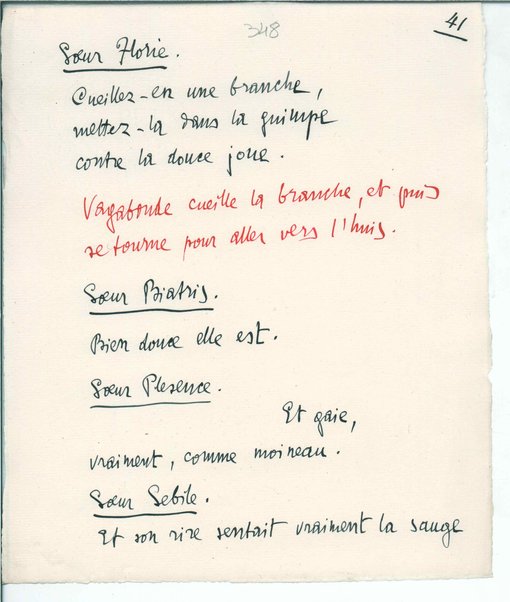 348
41
Sœur Florie.
Cueillez-en une branche,
mettez-la dans la guimpe
contre la douce joue.
Vagabonde cueille la branche, et puis
se tourne pour aller vers l'huis.
Sœur Biatris.
Bien douce elle est.
Sœur Plesence.
Et gaie,
vraiment, comme moineau.
Sœur Sebile.
Et son rire sentait vraiment la sauge